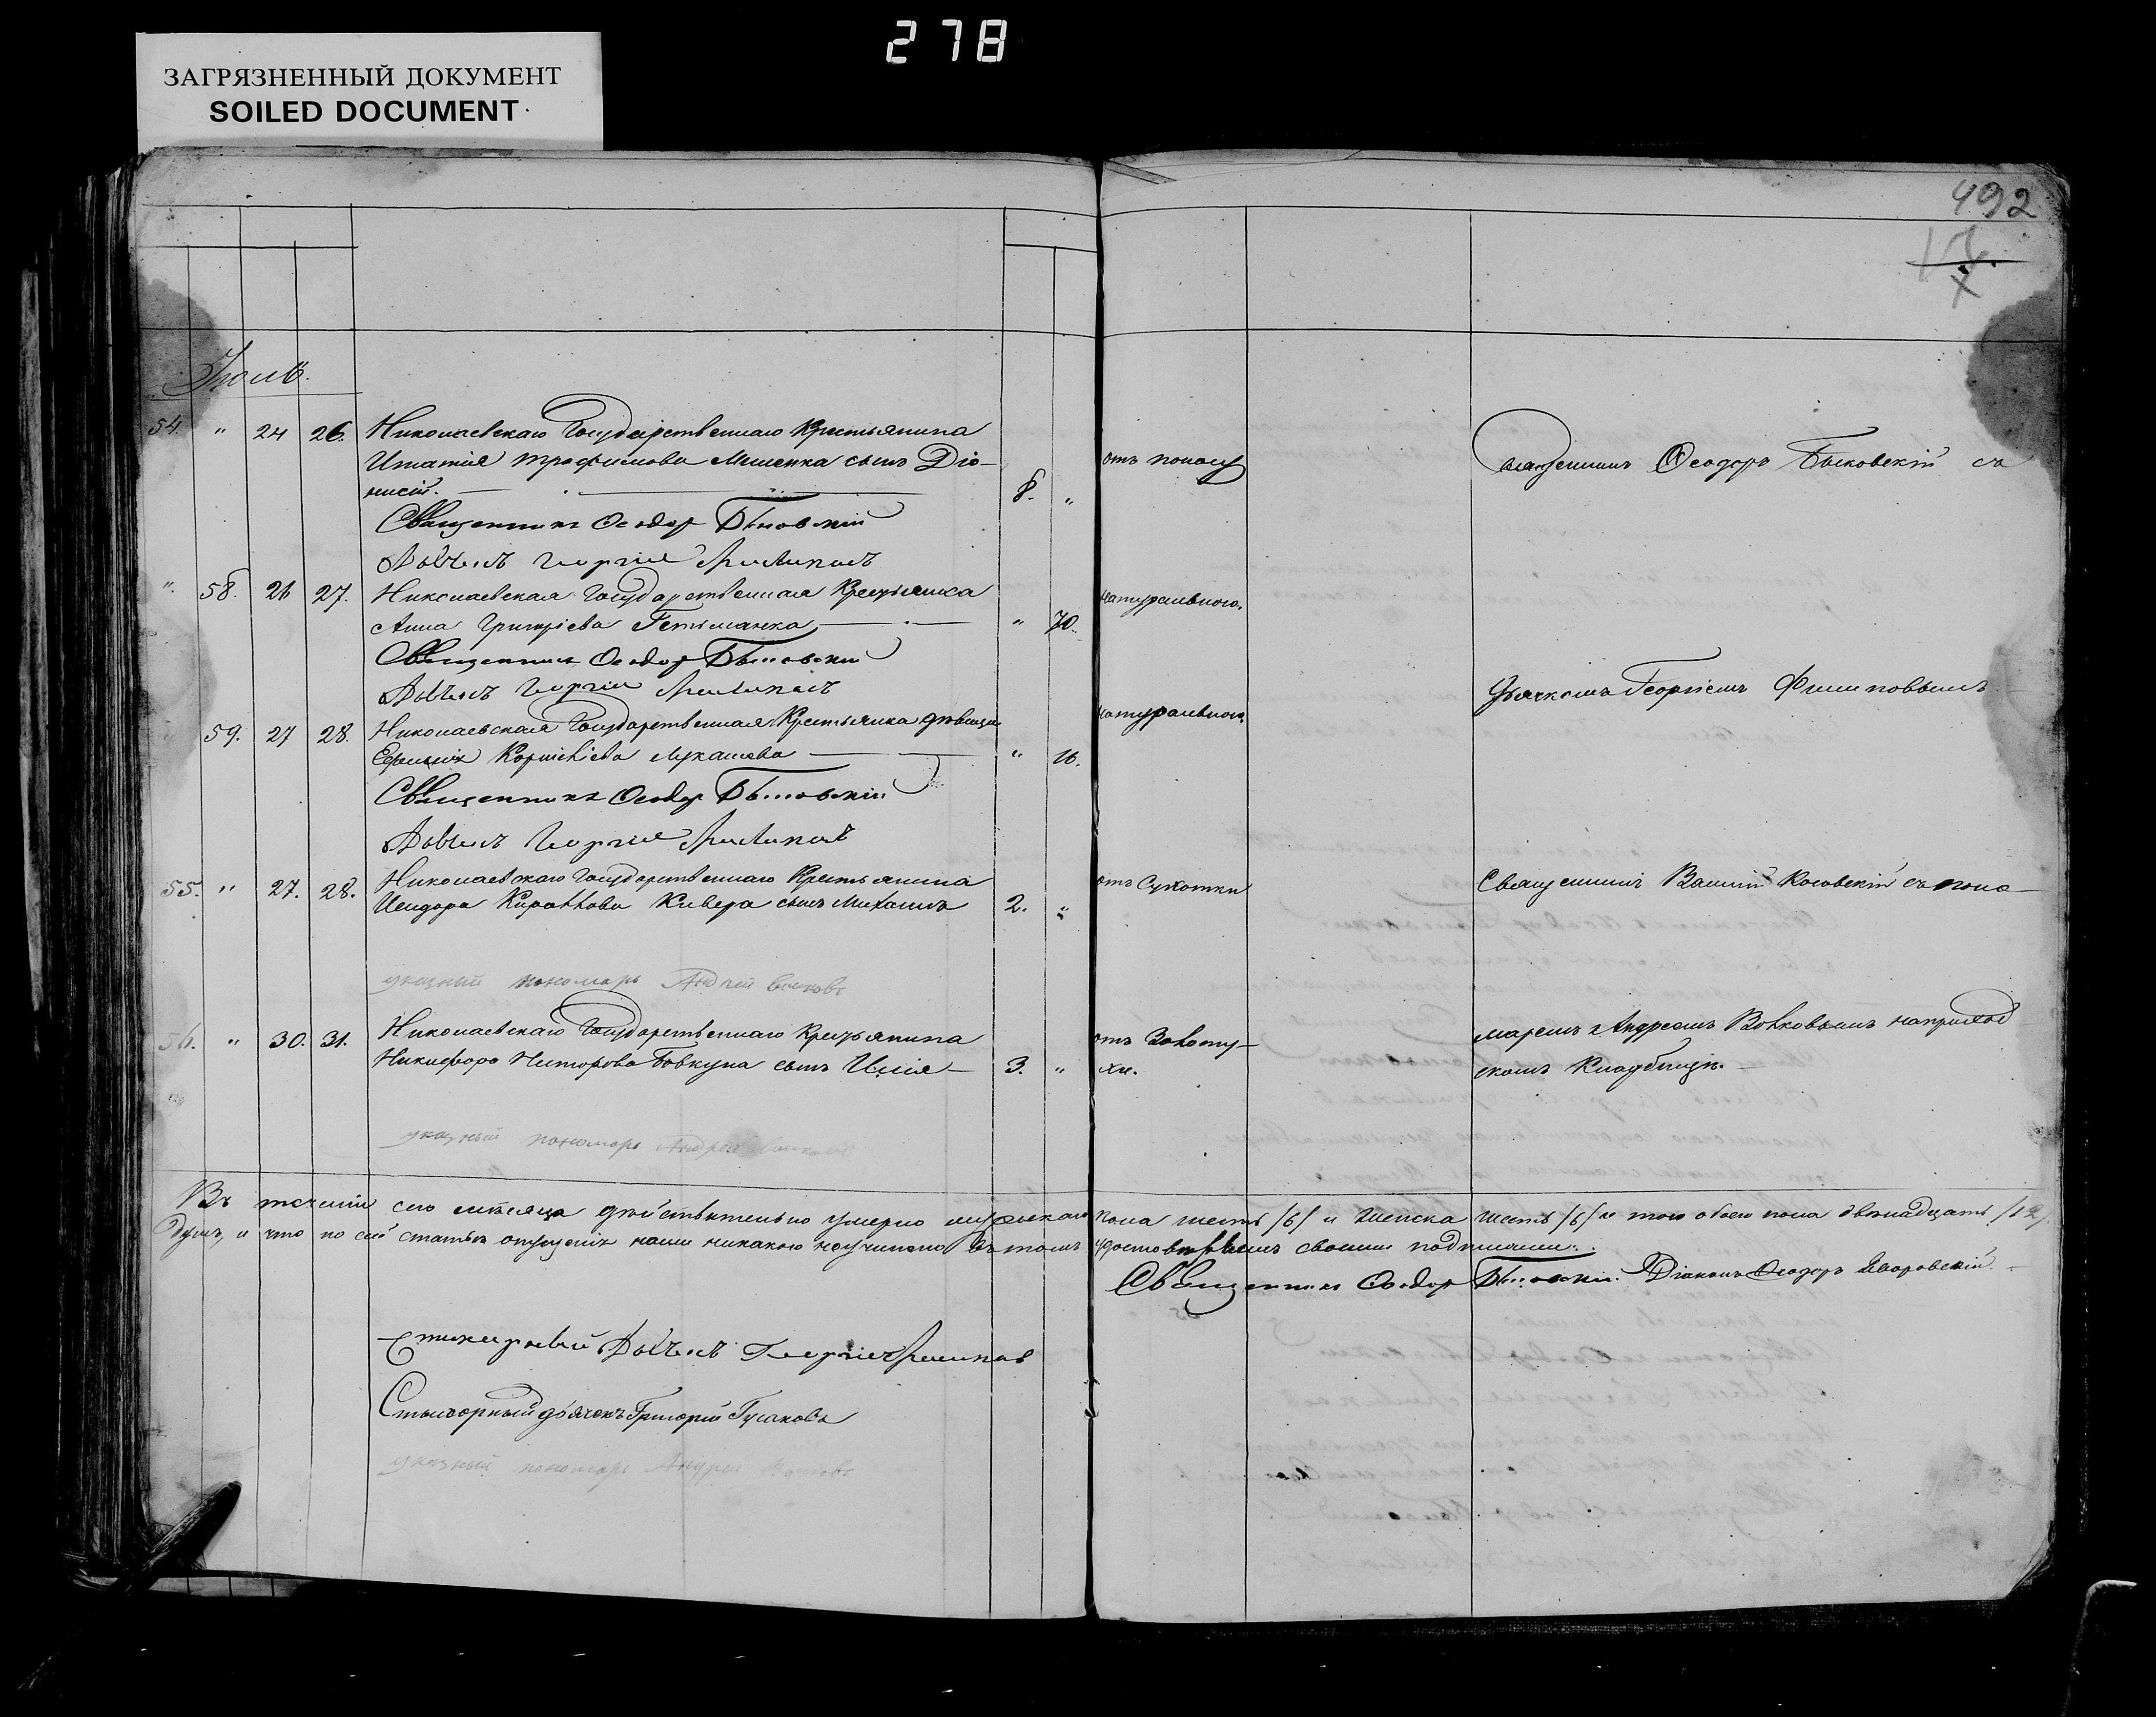 278
ЗАГРЯЗНЕННЫЙ ДОКУМЕНТ
SOILED DOCUMENT
492
Іюль.
54. " 24 26. Николаевскаго Государственнаго Крестьянина
Игнатія Трофимова сынъ Діо-
нисій. 8. " отъ поносу Священникъ Ѳеодоръ Быковскій съ
Священникъ Ѳеодоръ Быковскій
Дьячекъ Георгій Филиповъ
". 58. 26 27. Николаевская Государственная Крестьянка
Анна Григоріева Гетманка " 70. натуральною.
Священникъ Ѳеодоръ Быковскій
Дьячекъ Георгій Филиповъ
Дьячкомъ Георгіемъ Филиповымъ
59. 27 28. Николаевская Государственная Крестьянка дѣвица
Корніліева Лукашева " 16. натуральною.
Священникъ Ѳеодоръ Быковскій
Дьячекъ Георгій Филиповъ
55. " 27. 28. Николаевскаго Государственнаго Крестьянина
Исидора Кивера сынъ Михаилъ 2. " отъ Сухотки Священникъ Косовскій съ поно-
указный пономарь Андрей Волковъ
56. " 30. 31. Николаевскаго Государственнаго Крестьянина
Никифора Бовкуна сынъ Илія 3. " отъ Золоту-
хи.
маремъ Андреемъ Волковымъ на приход
скомъ Кладбищѣ.
указный пономарь Андрей Волковъ
Въ теченіи сего мѣсяца дѣйствительно умерло мужескаго пола шесть /6/ и женска шесть /6/ а того обоего пола двенадцать /12/.
душъ, и что по сей статьѣ опущенія нами никакого неучинено въ томъ удостовѣряемъ своими подписами.
Священникъ Ѳеодоръ Быковскій. Діаконъ Ѳеодоръ Яворовскій.
Стихарный Дьячекъ Георгій Филиповъ
Стихорный дьячокъ Григорій Гусаковъ
указный пономарь Андрей Волковъ